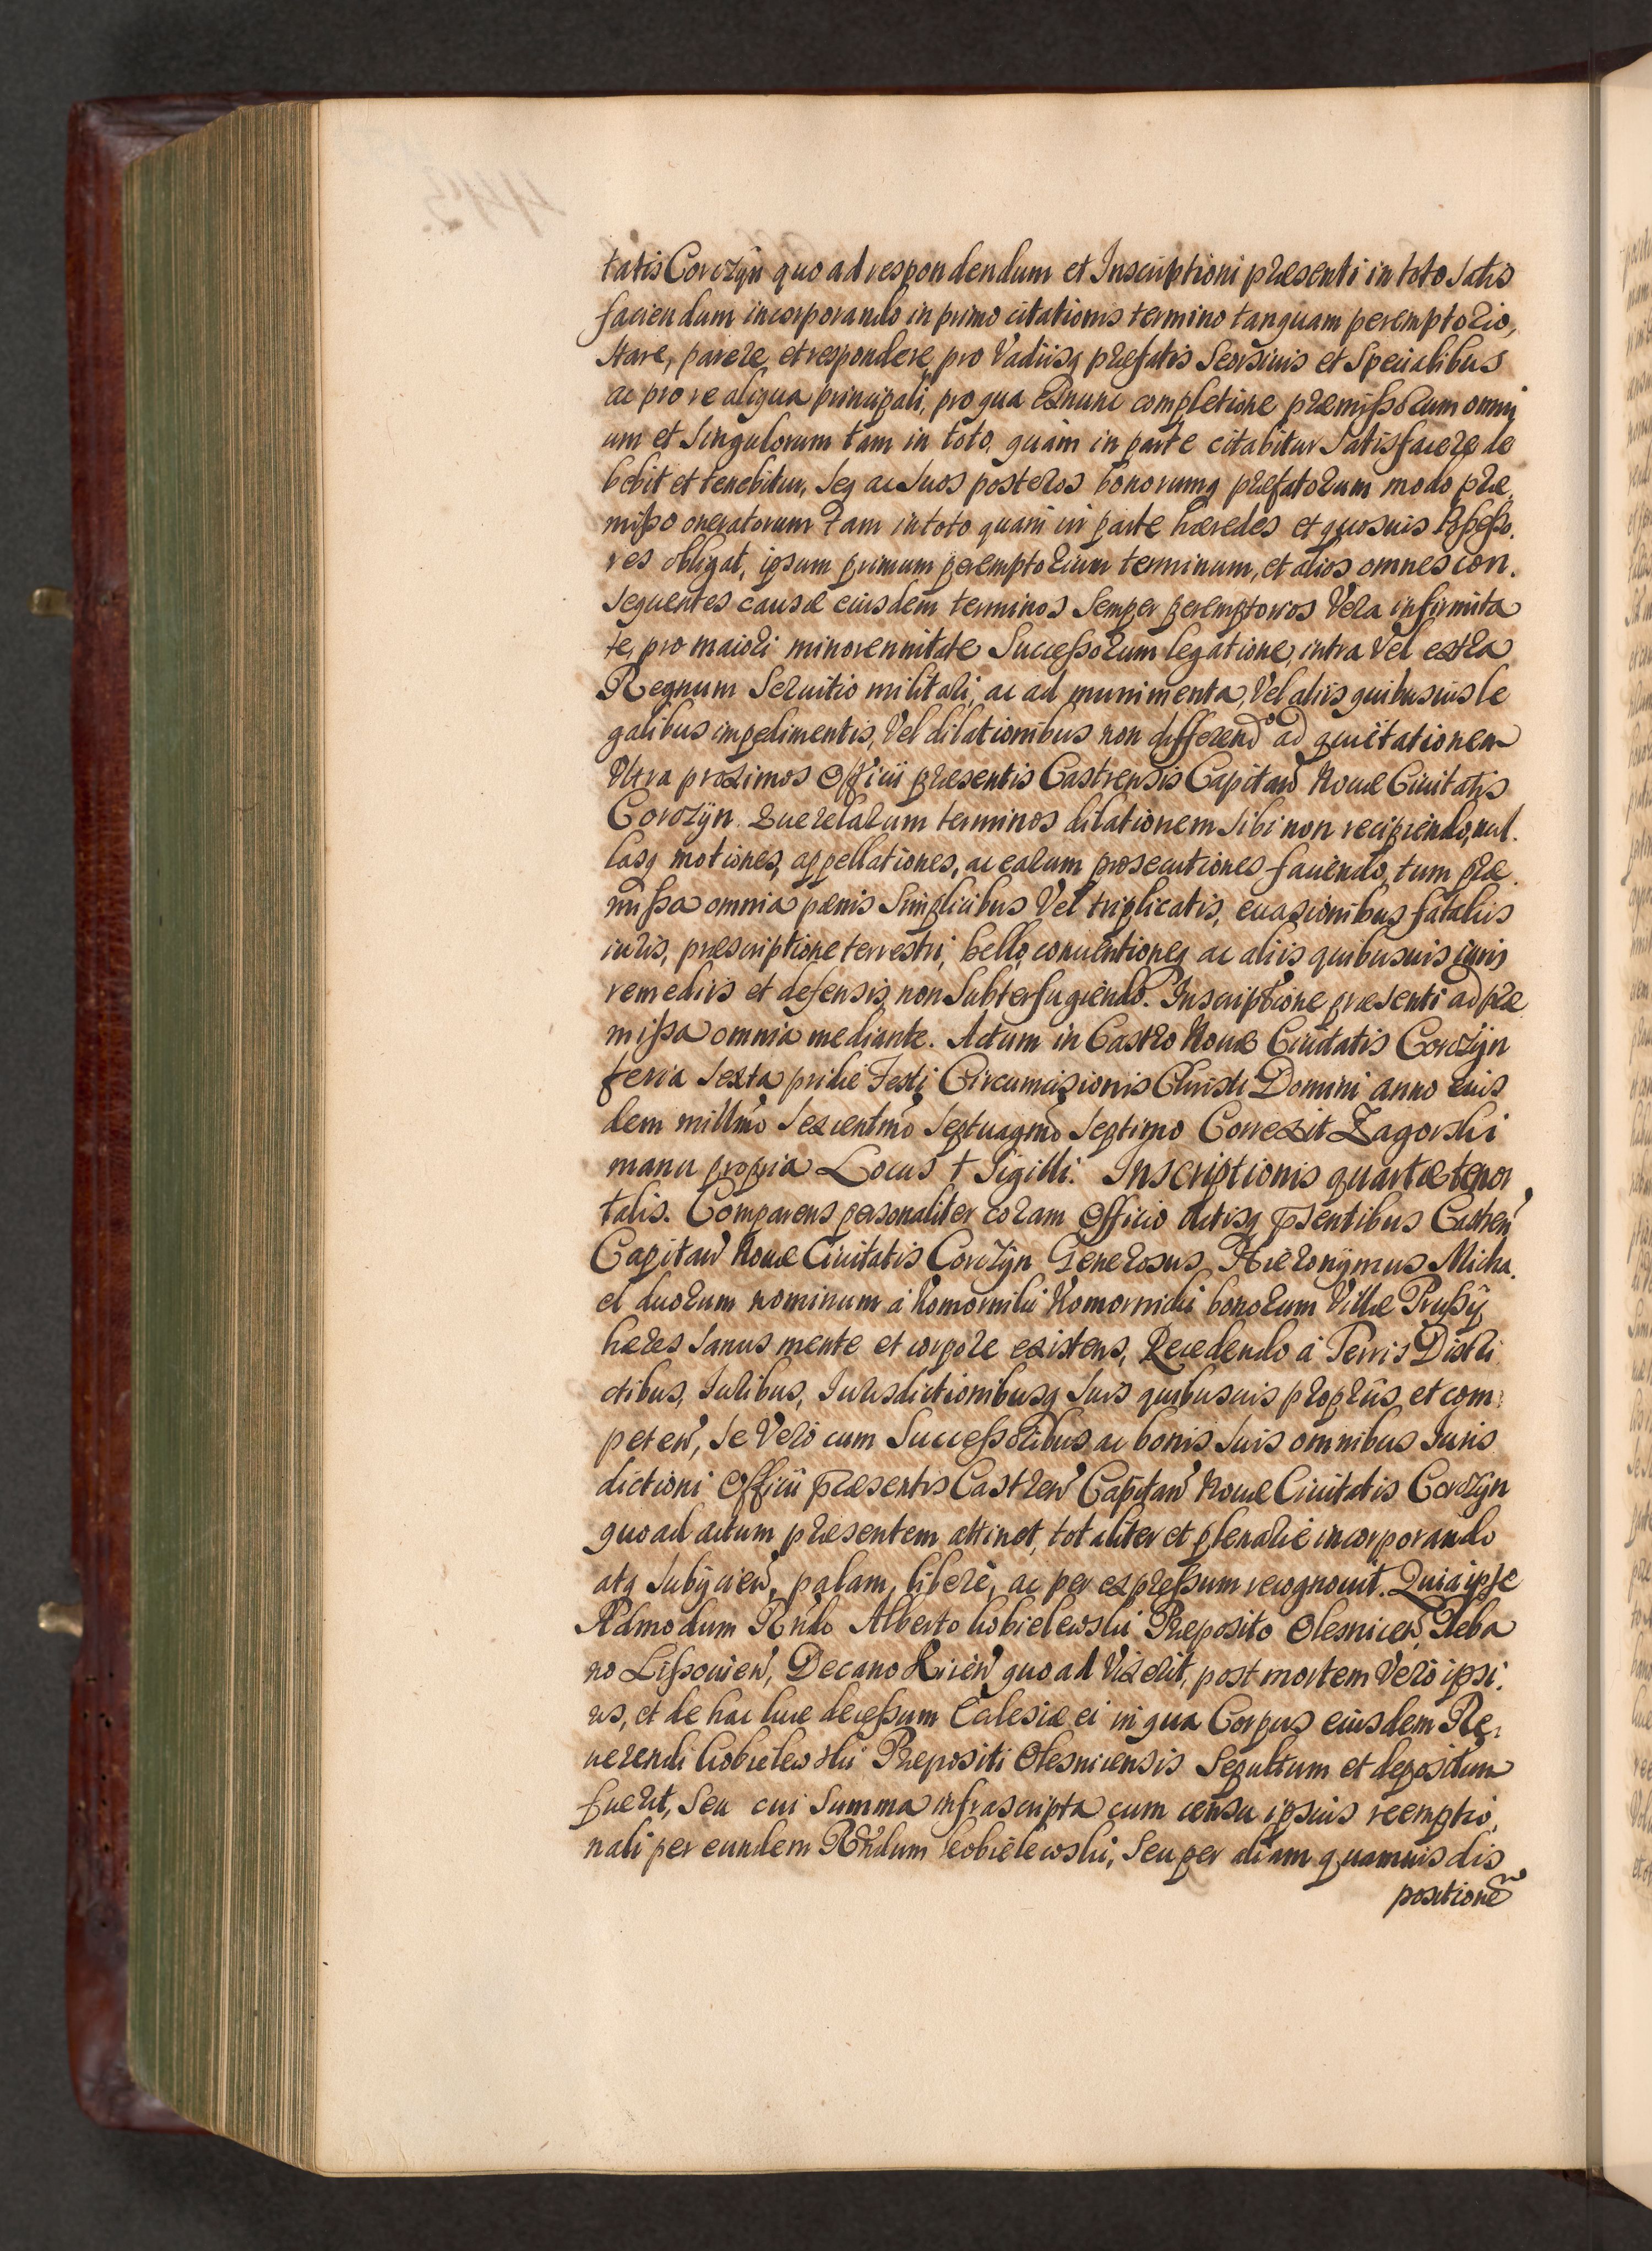 tatis Corczÿn quo ad respondendum et Inscriptioni præsenti in toto satis
faciendum incorporando in primo citationis termino tanquam peremptorio,
stare, parere, et respondere, pro Vadiisq præfatis Seorsiuis et Specialibus
ac pro re aliqua principali, pro qua Exnunc completione præmißorum omni
um et Singulorum tam in toto, quàm in parte citabitur Satisfacere de
bebit et tenebitur, Seq ac Suos posteros bonorumq præfatorum modo præ
mißo oneratorum tam in toto quam in parte hæredes et quosuis Poßeßo.
res obligat, ipsum primum peremptorium terminum, et alios omnes con.
sequentes causæ eiusdem terminos Semper peremptorios Vera infirmita
te, pro maiori minorennitate Succeßorum legatione, intra Vel extra
Regnum Seruitio militari, ac ad munimenta, Vel aliis quibusuis le
galibus impedimentis, Vel dilationibus non differendo ad quietationem
Ultra proximos Officii præsentis Castrensis Capitan Nouæ Ciuitatis
Corczÿn Querelarum terminos dilationem Sibi non recipiendo, nul.
lasq motiones, appellationes, ac earum prosecutiones faciendo, tum præ.
mißa omnia pænis Simplicibus Vel triplicatis, euasionibus fataliis
iuris, præscriptione terrestri, bello, conuentioneq ac aliis quibusuis iuris
remediis et defensis non Subterfugiendo. Inscriptione præsenti ad præ
mißa omnia mediante. Actum in Castro Nouæ Ciuitatis Corczÿn
feria Sexta pridie Festi Circumcisionis Christi Domini anno eius
dem millmo Sexcentmo Septuagmo Septimo Correxit Zagorski
manu propria Locus † Sigilli. Inscriptionis quartæ tenor
talis. Comparens personaliter coram Officio Actisq psentibus Castren
Capitan Nouæ Ciuitatis Corczÿn Generosus Hieronÿmus Micha.
el duorum nominum à Komorniki Komornicki bonorum Villæ Prußÿ
hæres Sanus mente et corpore existens, Recedendo à Terris Distri
ctibus, Iuribus, Iurisdictionibusq Suis quibusuis propriis et com:
peten, Se Verò cum Succeßoribus ac bonis Suis omnibus Iuris
dictioni Officii præsentis Castren Capitan Nouæ Ciuitatis Corczÿn
quo ad actum præsentem attinet, totaliter et plenariè incorporando
atq Subÿcien, palam, liberè, ac per expreßum recognouit. Quia ipse
Admodum Rndo Alberto Kobielewski Præposito Olesnicen Pleba
no Lißouien, Decano quo ad Vixerit, post mortem Verò ipsi.
us, et de hac luce deceßum Ecclesiæ ei in qua Corpus eiusdem Re,
uerendi Kobielewski Præpositi Olesnicensis Sepultum et depositum
fuerit, Seu cui Summa infrascripta cum censu ipsius reemptio,
nali per eundem Rndum Kobielewski, Seu per aliam quamuis dis
positione